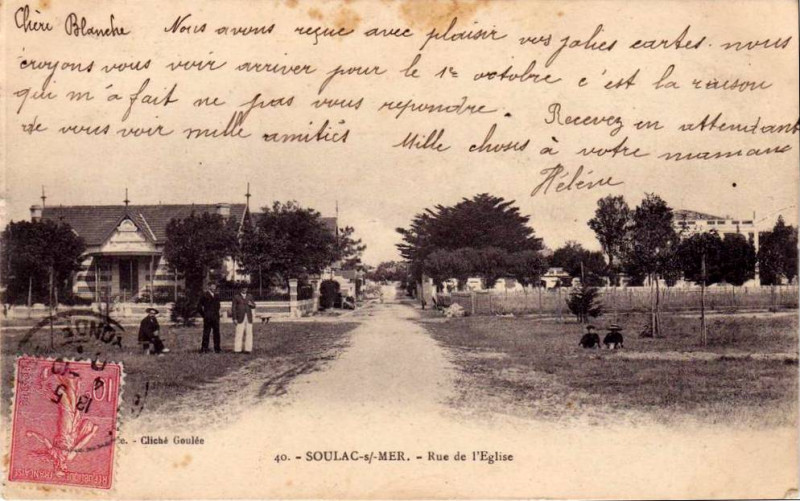 Chère Blanche Nous avons reçue avec plaisir vos jolies cartes. nous
croyons vous voir arriver pour le 1er octobre c'est la raison
qui m'a fait ne pas vous repondre. Recevez en attendant
de vous voir mille amitiés Mille choses à votre maman
Hélène
10
Cliché Goulée
40. - SOULAC-s/-MER. - Rue de l'Eglise